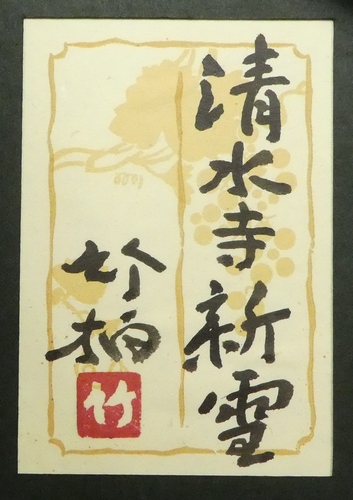 清水寺新雪
竹柏
竹